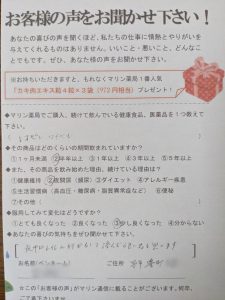 お客様の声をお聞かせ下さい！
あなたの喜びの声を聞くほど、私たちの仕事に情熱とやりがいを
与えてくれるものはありません。いいこと・悪いこと、どんなこと
でもです。ぜひ、あなた様の声をお聞かせ下さい。
※お持ちいただきますと、もれなくマリン薬局１番人気
「カキ肉エキス粒４粒×３袋（972円相当）プレゼント！
◆マリン薬局でご購入、続けて飲んでいる健康食品、医薬品を１つ教えて
下さい。
◆その商品はどのくらいの期間飲まれていますか？
①１ヶ月未満 ②半年以上 ③１年以上 ④３年以上 ⑤５年以上
◆また、その商品を飲み始めた理由、続けている理由は？
①健康維持 ②諸関節（頭痛） ③ダイエット ④アレルギー疾患
⑤生活習慣病（高血圧・糖尿病・脂質異常症など） ⑥便秘
⑦その他（ ）
◆服用してみて変化はどうですか？
①とても良くなった ②良くなった ③少し良くなった ④分からない
◆あなたの喜びの気持ちをぜひお聞かせ下さい。
お名前（ペンネーム） ご住所
☆この「お客様の声」がマリン通信に載ることがございます。何卒、
ご了承下さいませ